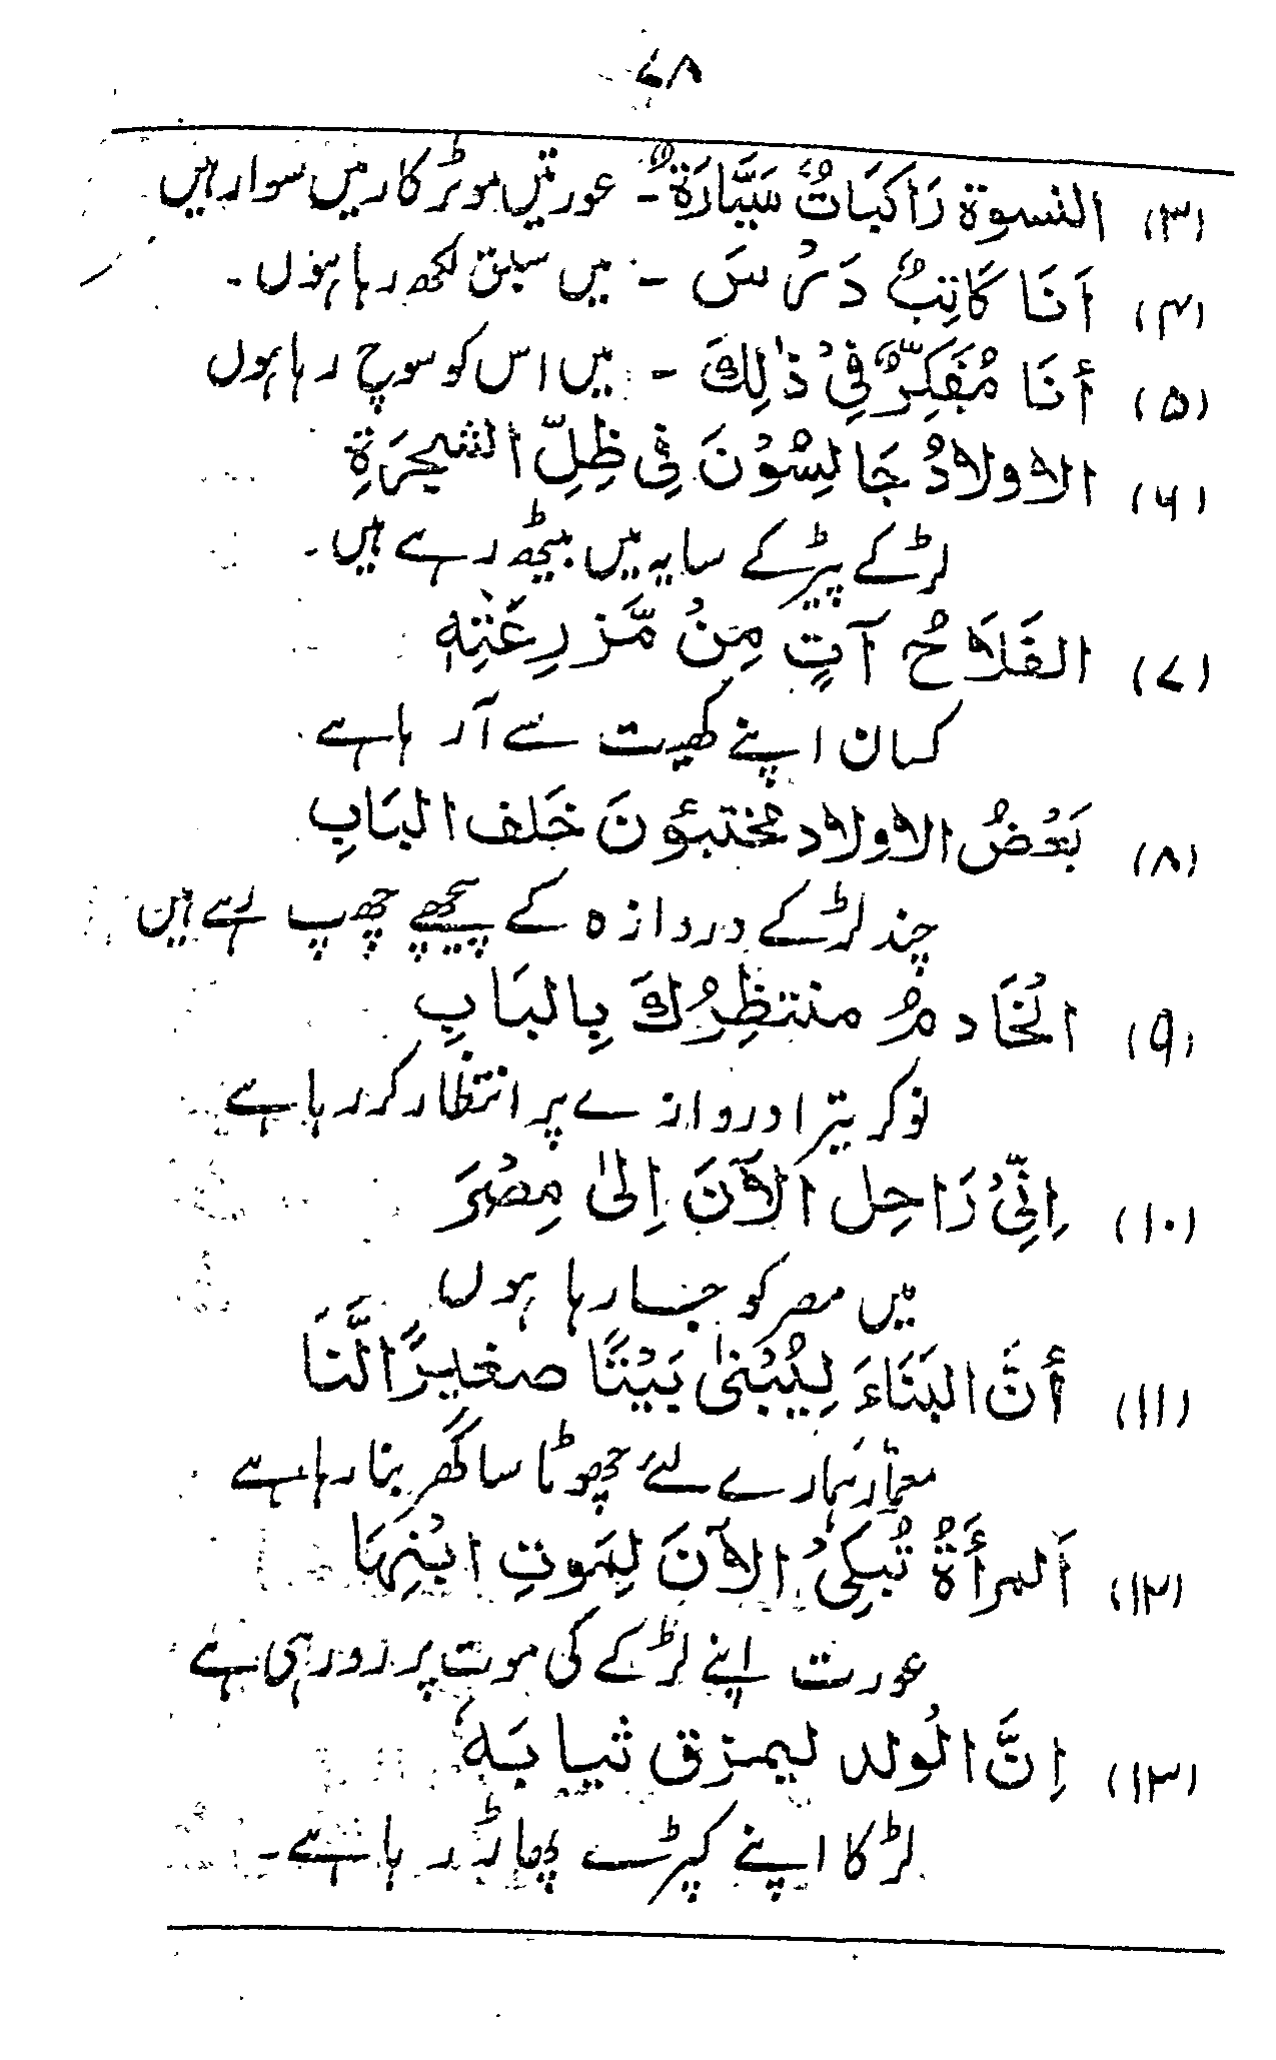 ۷۸
(۳) النسوة رَاكِبَاتٌ سَيَّارَةٌ ۔ عورتیں موٹر کار میں سوار ہیں
(۴) اَنَا كَاتِبٌ دَرْسَ ۔ میں سبق لکھ رہا ہوں۔
(۵) أنَا مُفَكِّرٌ فِیْ ذٰلِكَ ۔ میں اس کو سوچ رہا ہوں
(۶) الاولادُ جَالِسُوْنَ فِی ظِلِّ الشجرَةِ
لڑکے پیڑ کے سایہ میں بیٹھ رہے ہیں۔
(۷) الفَلَاحُ آتٍ مِنْ مَّزرِعَتِهٖ
کسان اپنے کھیت سے آ رہا ہے
(۸) بَعْضُ الاولاد مختبؤنَ خَلف البَابِ
چند لڑکے دروازہ کے پیچھے چھپ رہے ہیں
(۹) الْخَادمُ منتظِرُكَ بِالبَابِ
نوکر تیرا دروازے پر انتظار کر رہا ہے
(۱۰) اِنِّیْ رَاحِل الآنَ اِلیٰ مِصْرَ
میں مصر کو جا رہا ہوں
(۱۱) أنَّ البَنَاءَ لِيُبْنیٰ بَيْتًا صغيرًا لَّنَا
معمار ہمارے لئے چھوٹا سا گھر بنا رہا ہے
(۱۲) اَلمرأَةُ تُبكِیْ الآنَ لِمَوتِ ابْنِهَا
عورت اپنے لڑکے کی موت پر رو رہی ہے
(۱۳) اِنَّ الْولد ليمزق ثيابَهٗ
لڑکا اپنے کپڑے پھاڑ رہا ہے۔